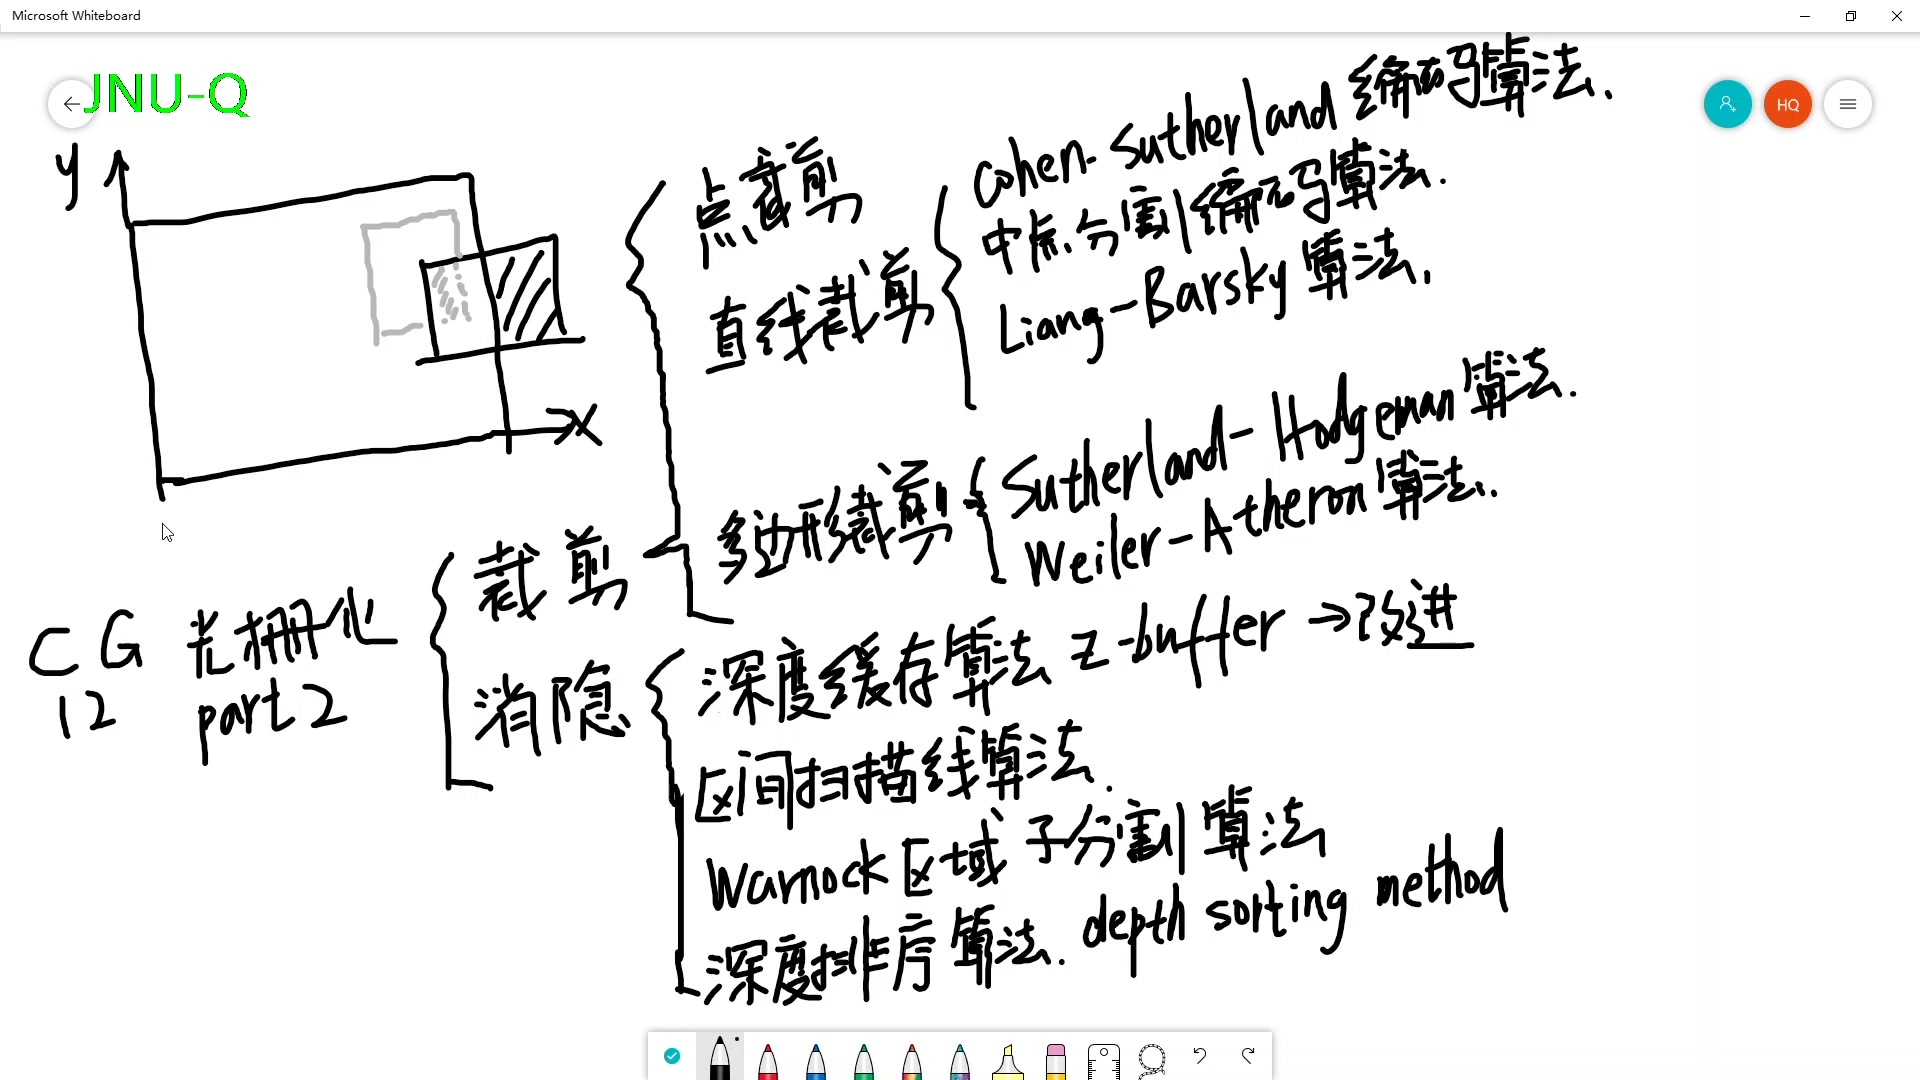 Microsoft Whiteboard
JNU-Q
HQ
y
x
CG 光栅化
12 part2
裁剪
点裁剪
直线裁剪
Cohen-Sutherland 编码算法.
中点分割编码算法.
Liang-Barsky 算法.
多边形裁剪
Sutherland-Hodgeman 算法.
Weiler-Atheron 算法.
消隐
深度缓存算法 z-buffer →改进
区间扫描线算法.
Warnock 区域子分割算法
深度排序算法. depth sorting method